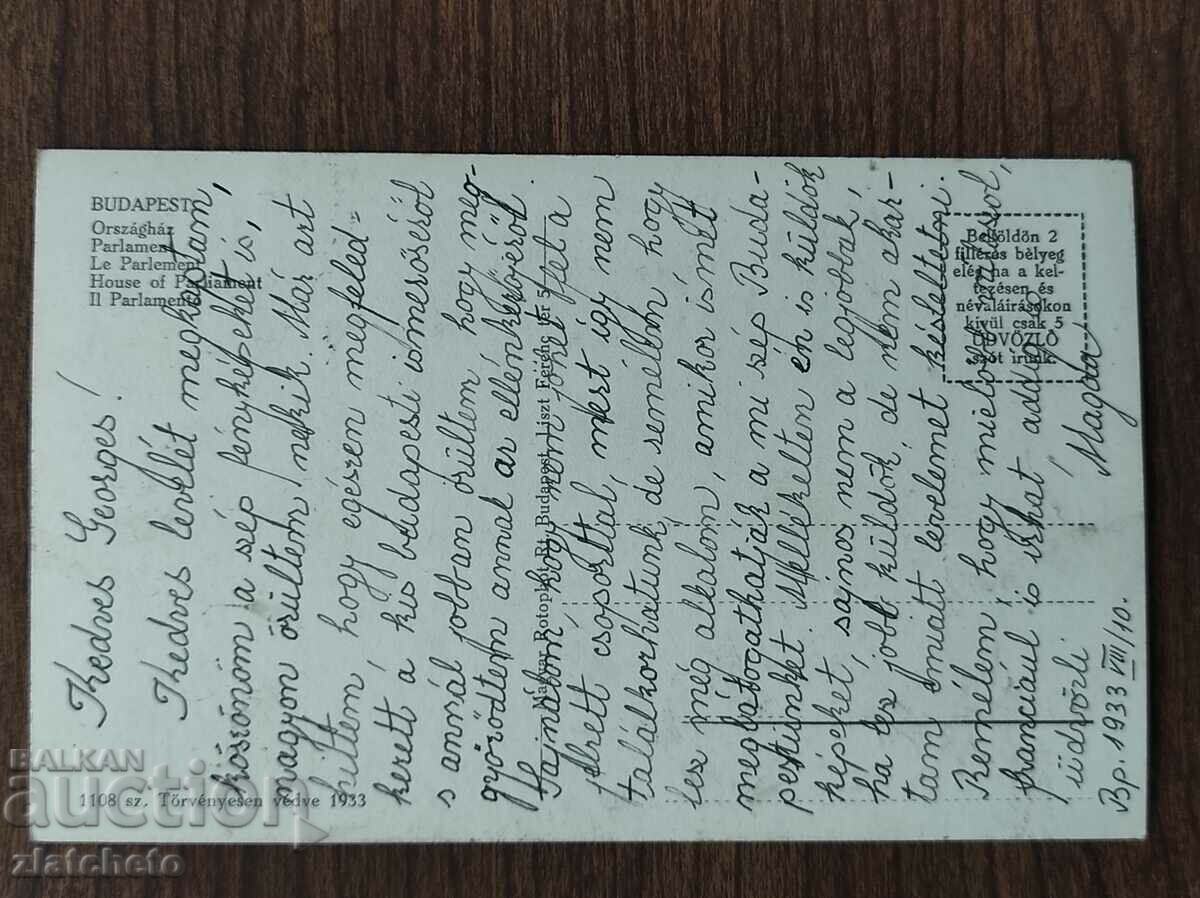 BUDAPEST
Országház
Parlament
Le Parlement
House of Parliament
Il Parlamento
Belföldön 2
filléres bélyeg
elég ha a kel-
tezésen és
névaláírásokon
kívül csak 5
ÜDVÖZLŐ
szót irunk.
Magyar Rotophot Rt. Budapest Liszt Ferenc tér 5.
1108 sz. Törvényesen védve 1933
Kedves Georges!
Kedves levelét megkaptam,
köszönöm a szép fényképeket is,
magyon örültem nekik. Már azt
hittem, hogy egészen megfeled=
kezett a kis budapesti ismerőséről
s annál jobban örültem hogy meg-
győződtem annak az ellenkezőjéről.
Sajnálom, hogy nem jöhet fel a
csoporttal, mert így nem
találkozhatunk, de remélem hogy
lesz még alkalom, amikor ismét
meglátogathatják a mi szép Buda-
pestünket. Mellékelten én is küldök
képeket, sajnos nem a legjobbak,
ha lesz jobb küldök de nem akar-
tam emiatt levelemet késleltetni.
Remélem, hogy mielőbb válaszol,
franciául is írhat addig is
üdvözli
Magda
Bp. 1933 VIII/10.
BALKAN
auction
zlatcheto